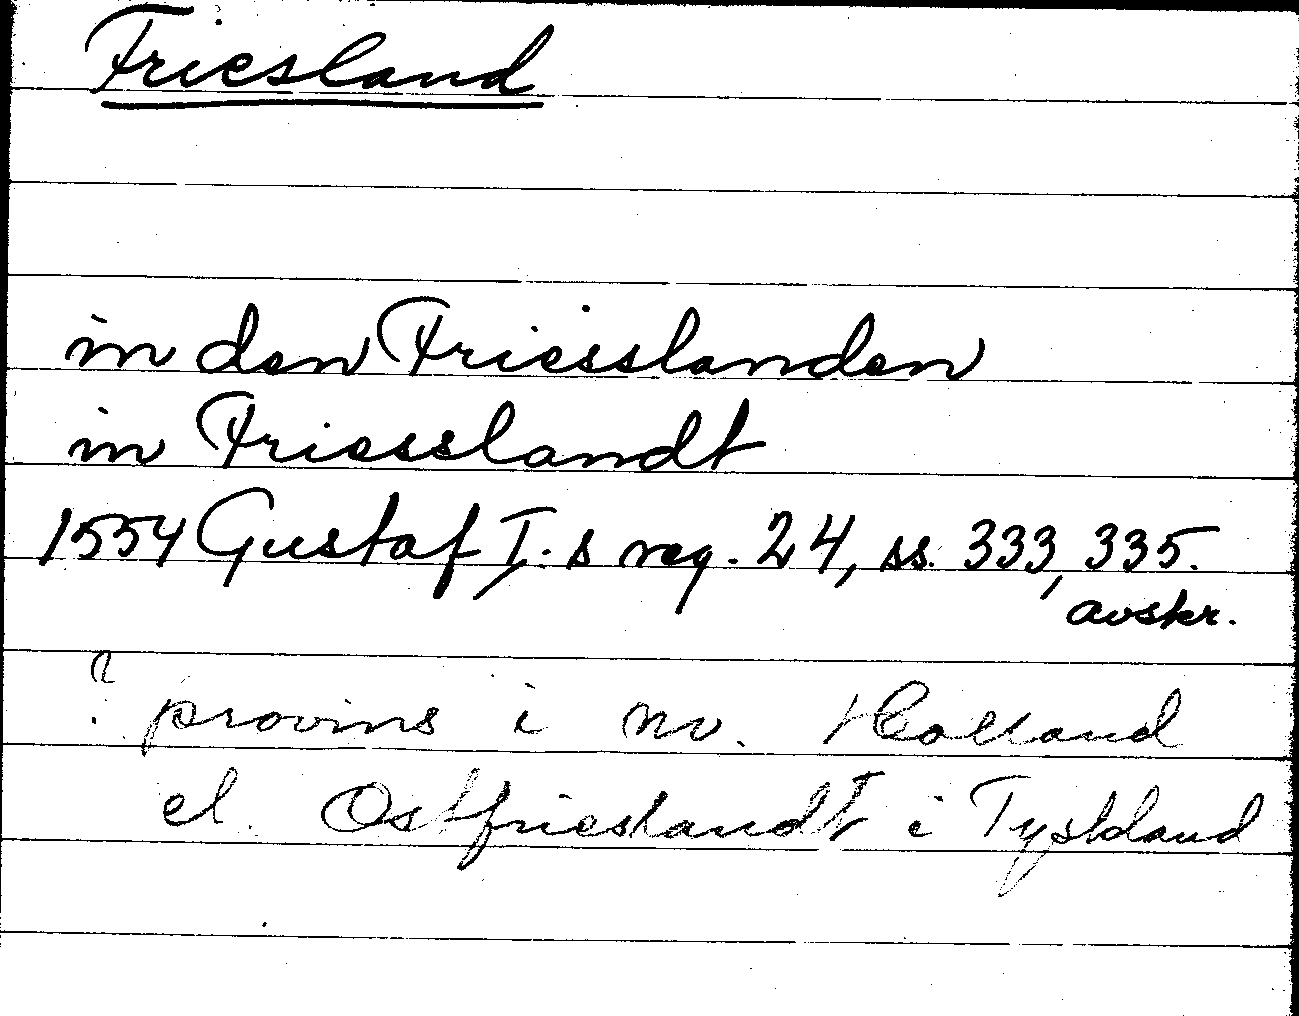 Friesland
in den Friesslanden
in Friesslandt
1554 Gustaf I:s reg. 24, ss. 333, 335.
avskr.
? provins i nv. Holland
el. Ostfrieslandt i Tyskland